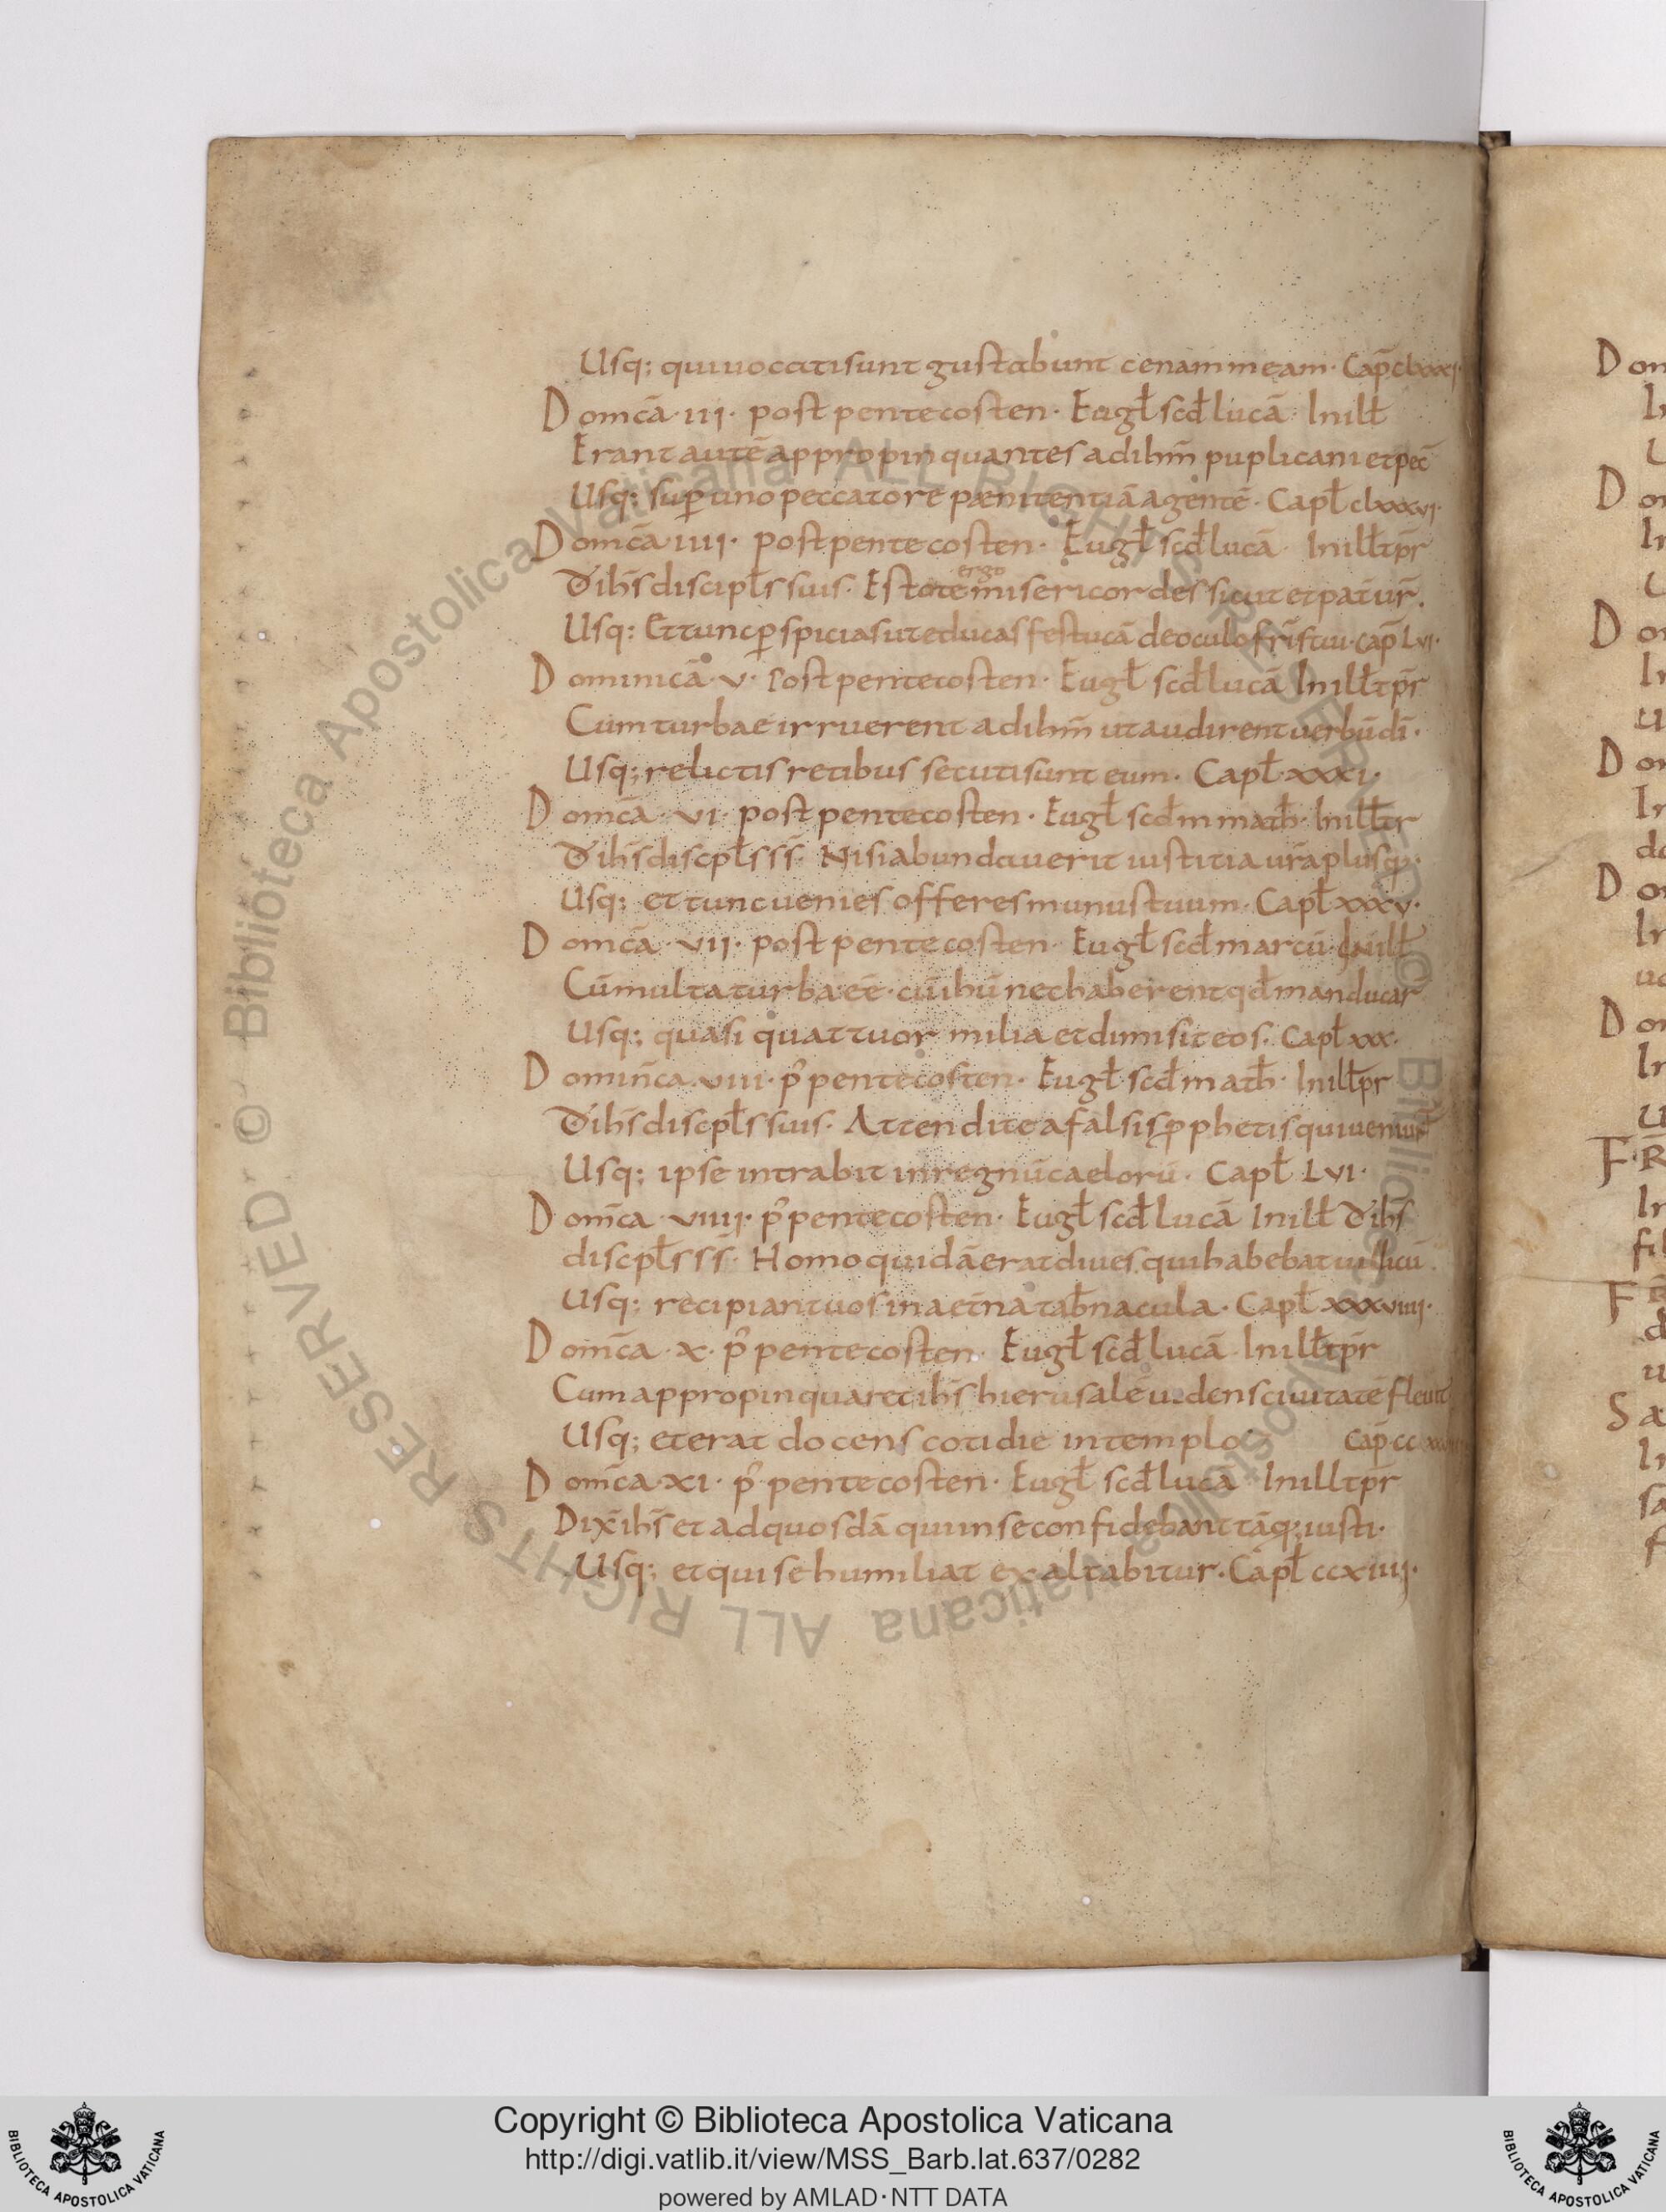 Usq; qui uocati sunt gustabunt cenam meam· Cap̄ clxxxi·
Domc̄a· iii· post pentecosten· Eugł scd̄ lucā· In illł
Erant autē appropinquantes ad ihm̄ puplicani et pec̄
Usq; suꝑ uno peccatore pænitentiā agentē· Capł clxxxvi·
Domc̄a· iiii· post pentecosten· Eugł scd̄ lucā· In illł tp̄r
ergo
D̄ ihs̄ discipłs suis· Estote misericordes sicut et pat̄ ur̄.
Usq; Et tunc ꝑspicias ut educas festucā de oculo fr̄is tui· cap̄ Lvi·
Dominicā· v· Post pentecosten· Eugł scd̄ lucā In illł tp̄r
Cum turbae irruerent ad ihm̄ ut audirent uerbū dī·
Usq; relictis retibus secuti sunt eum· Capł xxxi·
Domc̄a· vi· post pentecosten· Eugł scd̄m math̄· In illł tr
D̄ ihs̄ discpłs s̄s̄· Nisi abundauerit iustitia ur̄a plus q·
Usq; et tunc uenies offeres munus tuum· Capł xxxv·
Domc̄a· vii· post pentecosten· Eugł scd̄ marcū· In illł
Cū multa turba eē· cū ihū nec haberent qd̄ manducar̄
Usq; quasi quattuor milia et dimisit eos· Capł xxx·
Domiñca· viii· p̾ pentecosten· Eugł scd̄ math̄· In illł pr
D̄ ihs̄ discpłs suis· Attendite a falsis ꝓphetis qui ueniunt
Usq; ipse intrabit in regnū caelorū· Capł Lvi·
Dom̄ca· viiii· p̾ pentecosten· Eugł scd̄ lucā In illł D̄ ihs̄
discpłs s̄s̄· Homo quidā erat diues qui habebat uillicū
Usq; recipiant uos in aet̄na tab̄nacula· Capł xxxviiii·
Dom̄ca· x· p̾ pentecosten· Eugł scd̄ lucā· In illł tp̄r
Cum appropinquaret ihs̄ hierusalē uidens ciuitatē fleuit
Usq; et erat docens cotidie in templo· Cap̄· cc
Dom̄ca· xi· p̾ pentecosten· Eugł scd̄ lucā· In illł tp̄r
Dix̄ ihs̄ et ad quosdā qui in se confidebant tāq; iusti·
Usq; et qui se humiliat exaltabitur· Capł ccxiiii·
Copyright © Biblioteca Apostolica Vaticana
http://digi.vatlib.it/view/MSS_Barb.lat.637/0282
powered by AMLAD·NTT DATA